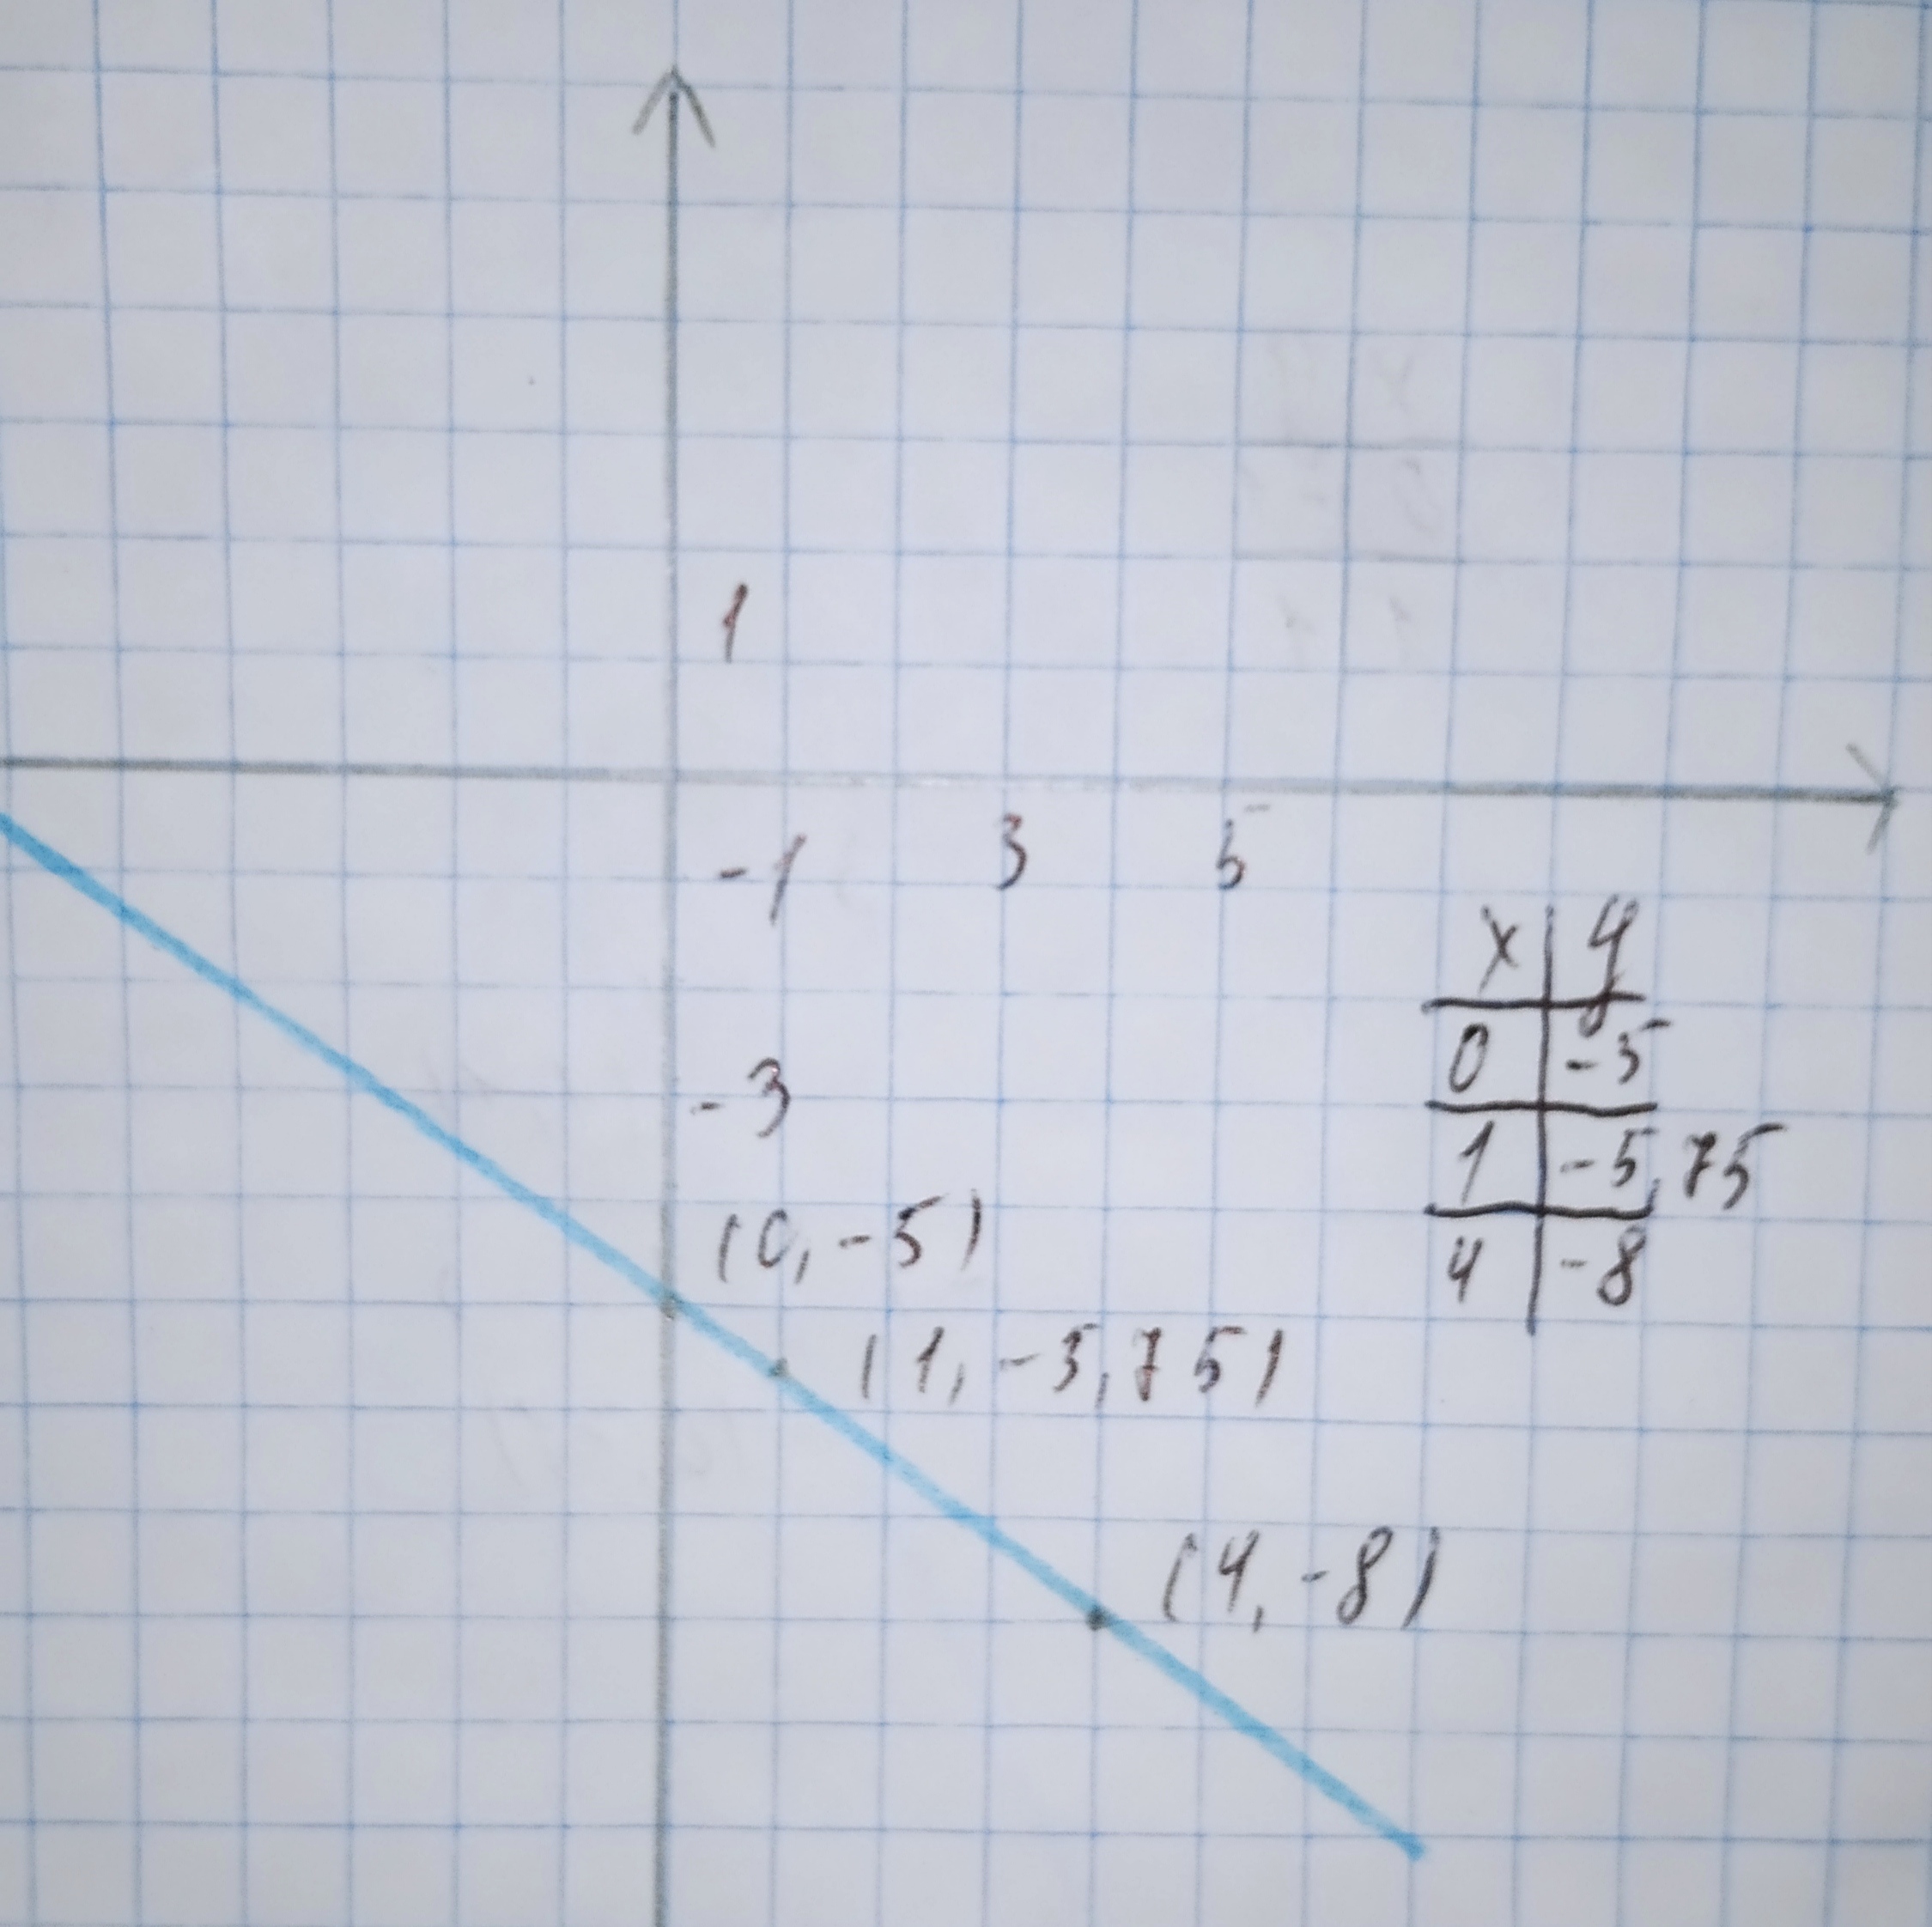 1
-1 3 5
-3
(0, -5)
(1, -5,75)
(4, -8)
x y
0 -5
1 -5,75
4 -8